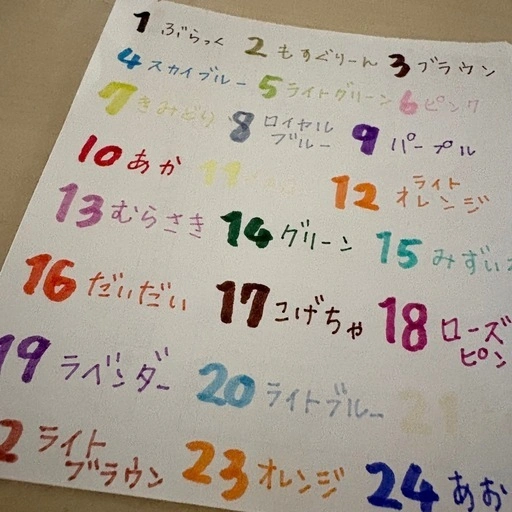 1 ぶらっく 2 もすぐりーん 3 ブラウン
4 スカイブルー 5 ライトグリーン 6 ピンク
7 きみどり 8 ロイヤルブルー 9 パープル
10 あか 11 12 ライトオレンジ
13 むらさき 14 グリーン 15 みずい
16 だいだい 17 こげちゃ 18 ローズピン
19 ラベンダー 20 ライトブルー 21
2 ライトブラウン 23 オレンジ 24 あお